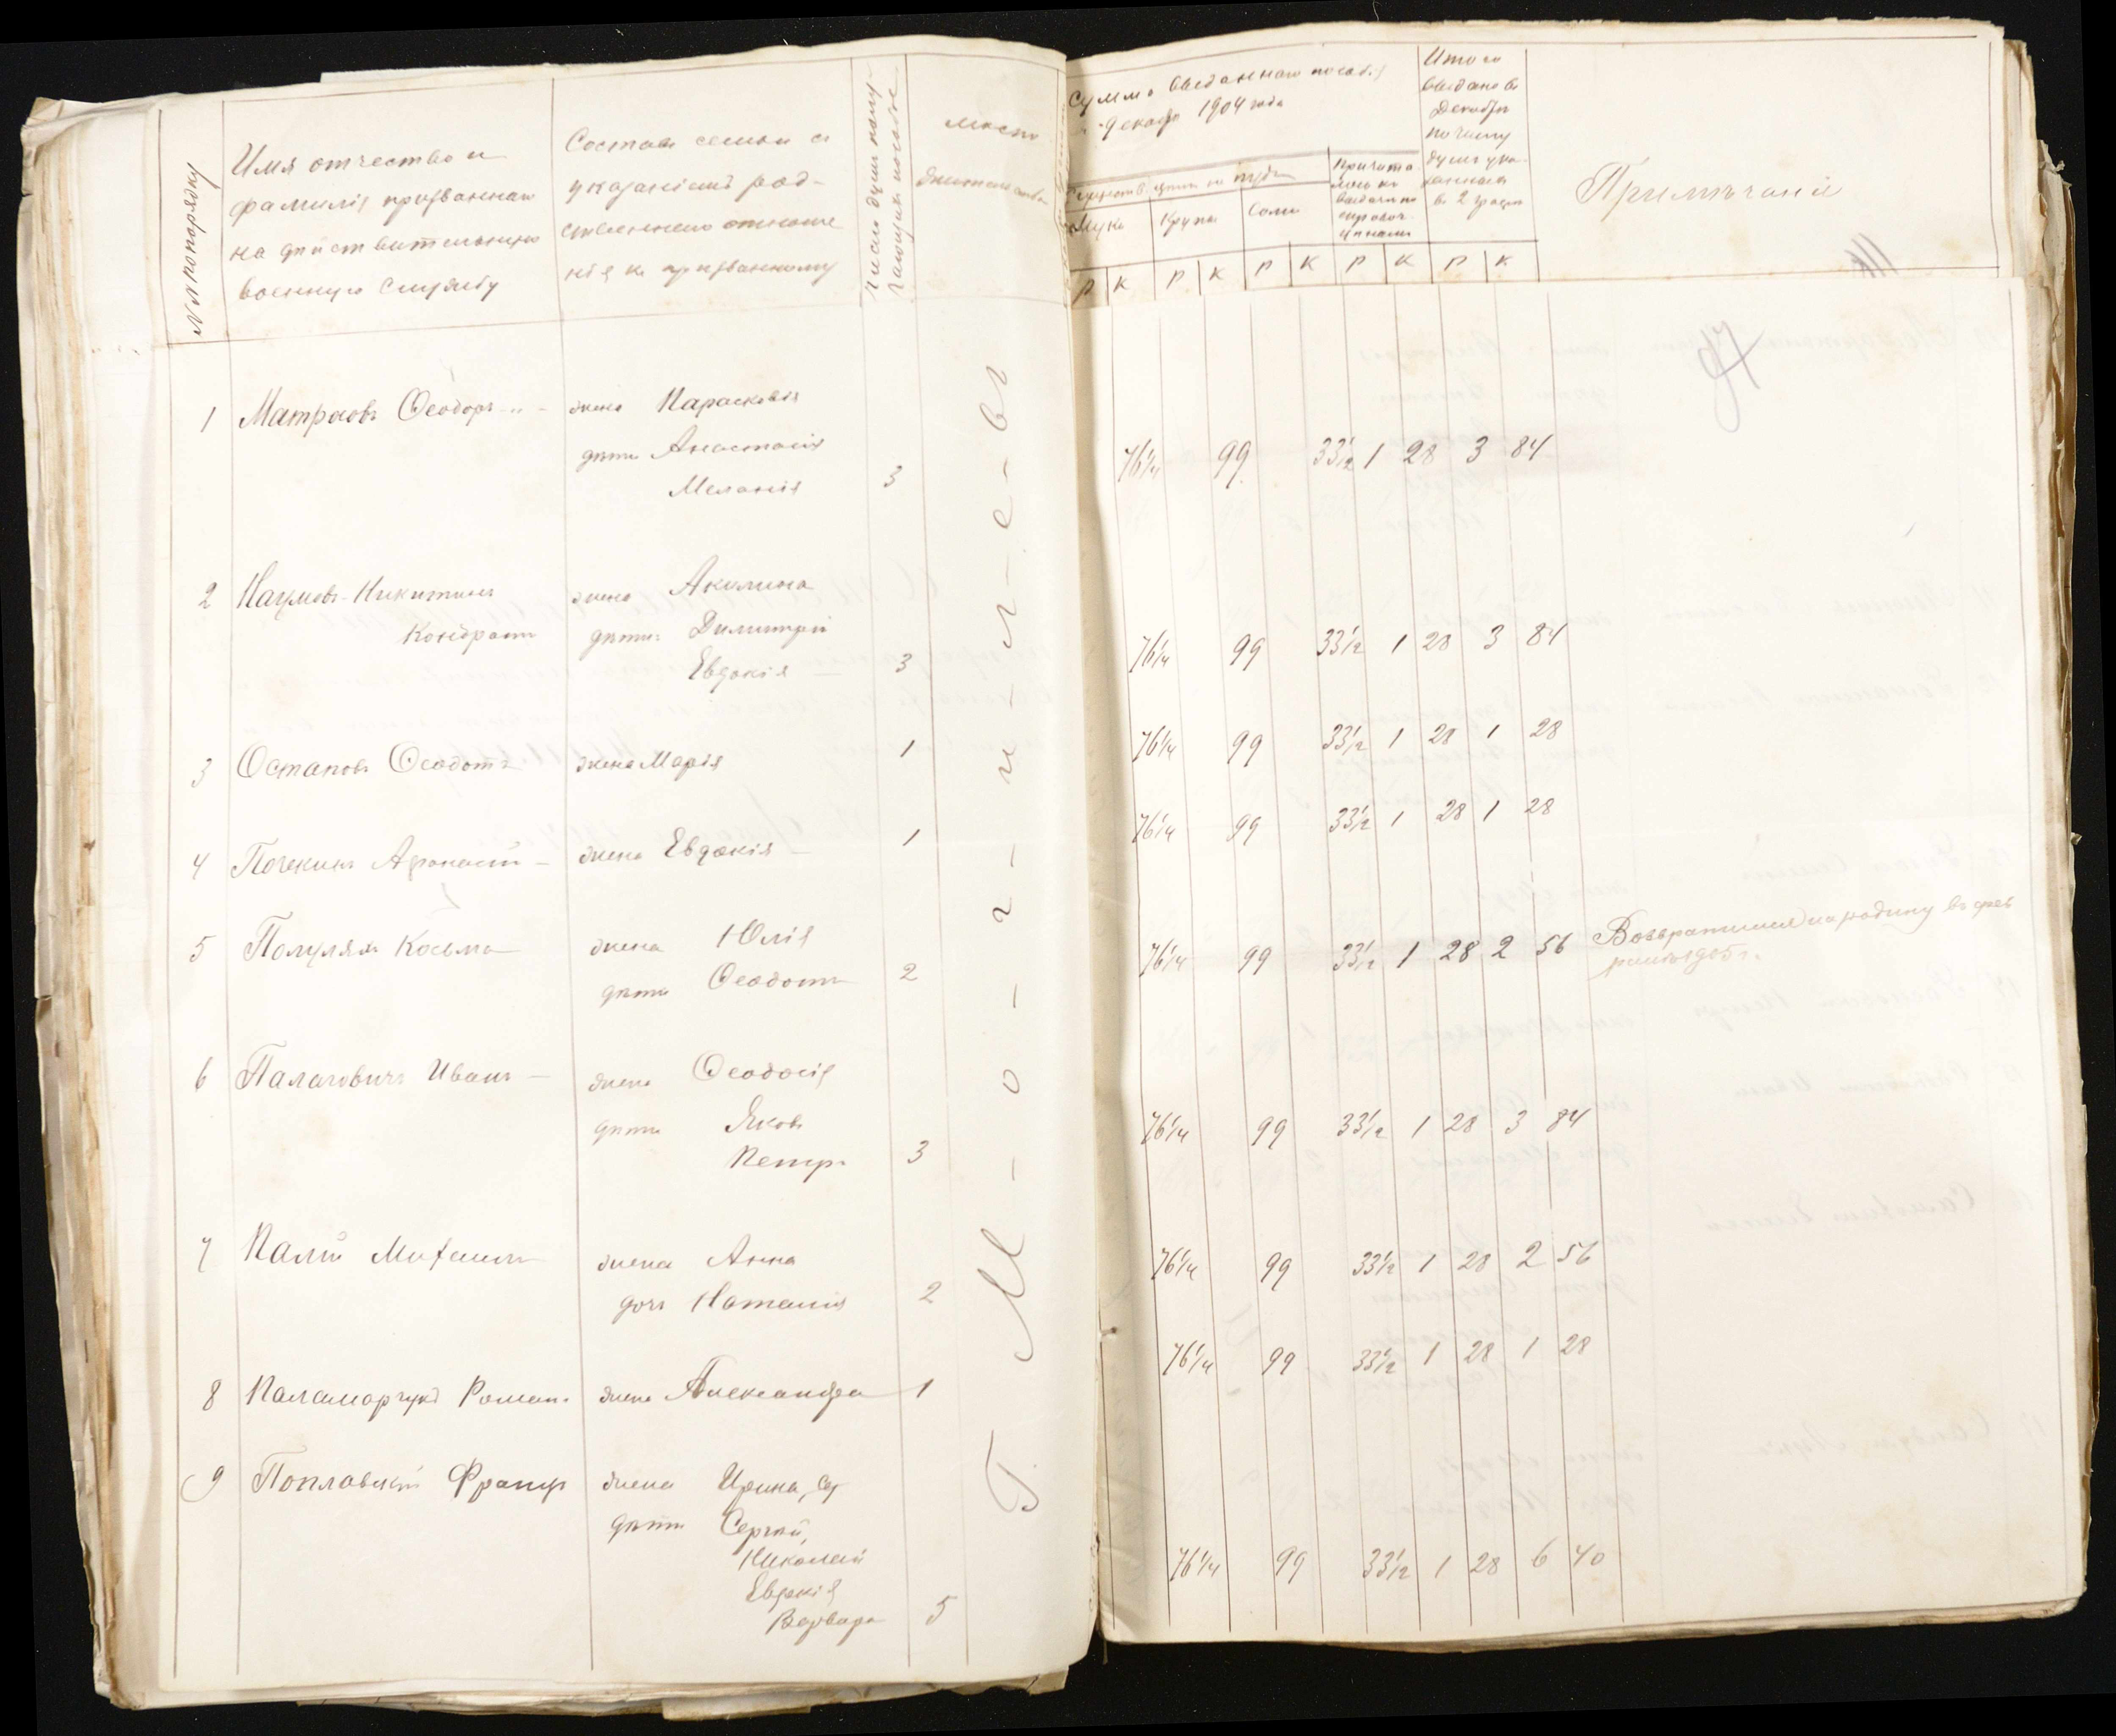 №№ по порядку
Имя отчество и
фамилія призваннаго
на дѣйствительную
военную службу
Составъ семьи съ
указаніемъ род-
ственнаго отноше
нія къ призванному
Число душъ полу-
чающихъ пособіе
Мѣсто
жительства
Сумма выданнаго пособія
декабрь 1904 года
Мука
Крупа
Соль
Причита
лось къ
выдачѣ по
справоч.
цѣнамъ
Итого
выдано въ
Декабрѣ
по числу
душъ ука-
занныхъ
въ 2 графѣ
Примѣчаніе
Р К Р К Р К Р К Р К
97
1 Матросовъ Ѳеодоръ жена Парасковія
дѣти Анастасія
Меланія 3
76 1/4 99 33 1/2 1 28 3 84
2 Наумовъ-Никитинъ жена Акилина
Кондратъ дѣти Димитрій
Евдокія 3
76 1/4 99 33 1/2 1 28 3 84
3 Остаповъ Ѳеодотъ жена Марія 1
76 1/4 99 33 1/2 1 28 1 28
4 Почекинъ Афанасій жена Евдокія 1
76 1/4 99 33 1/2 1 28 1 28
5 Полулях Косьма жена Юлія
дѣти Ѳеодотъ 2
76 1/4 99 33 1/2 1 28 2 56 Возвратился на родину въ фев
ралѣ 1905 г.
6 Палаговичъ Иванъ жена Ѳеодосія
дѣти Яковъ
Петръ 3
76 1/4 99 33 1/2 1 28 3 84
7 Палій Михаилъ жена Анна
дочь Наталія 2
76 1/4 99 33 1/2 1 28 2 56
8 Паламарчукъ Романъ жена Александра 1
76 1/4 99 33 1/2 1 28 1 28
9 Поплавскій Францъ жена Ирина,
дѣти Сергѣй,
Николай
Евдокія
Варвара 5
76 1/4 99 33 1/2 1 28 6 40
Г. М-о-г-и-л-е-въ